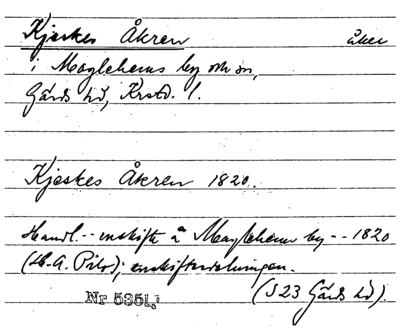 Kjeskes Åkren åker
i Maglehems by och sn,
Gärds hd, Krstd. l.
Kjeskes Åkren 1820.
Handl. -- enskifte å Maglehems by -- 1820
(H. A. Pilo); enskiftesdelningen.
Nr 5351; (J 23 Gärds hd).